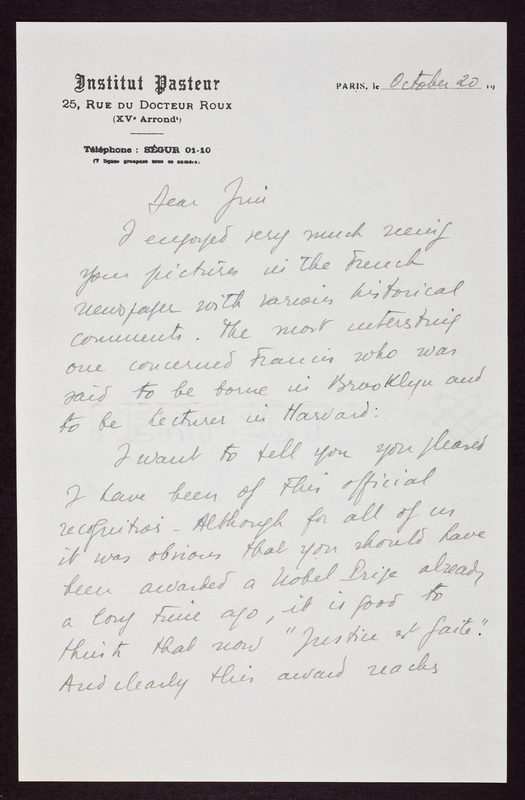 Institut Pasteur
25, Rue du Docteur Roux
(XVe Arrondt)
Téléphone : SÉGUR 01-10
(7 lignes groupées sous ce numéro)
PARIS, le October 20 19
Dear Jim
I enjoyed very much seing
your pictures in the French
newspaper with various historical
comments. The most interesting
one concerned Francis who was
said to be borne in Brooklyn and
to be lecturer in Harvard:
I want to tell you you pleased
I have been of this official
recognition - Although for all of us
it was obvious that you should have
been awarded a Nobel Prize already
a long time ago, it is good to
think that now "Justice est faite".
And clearly this award reachs